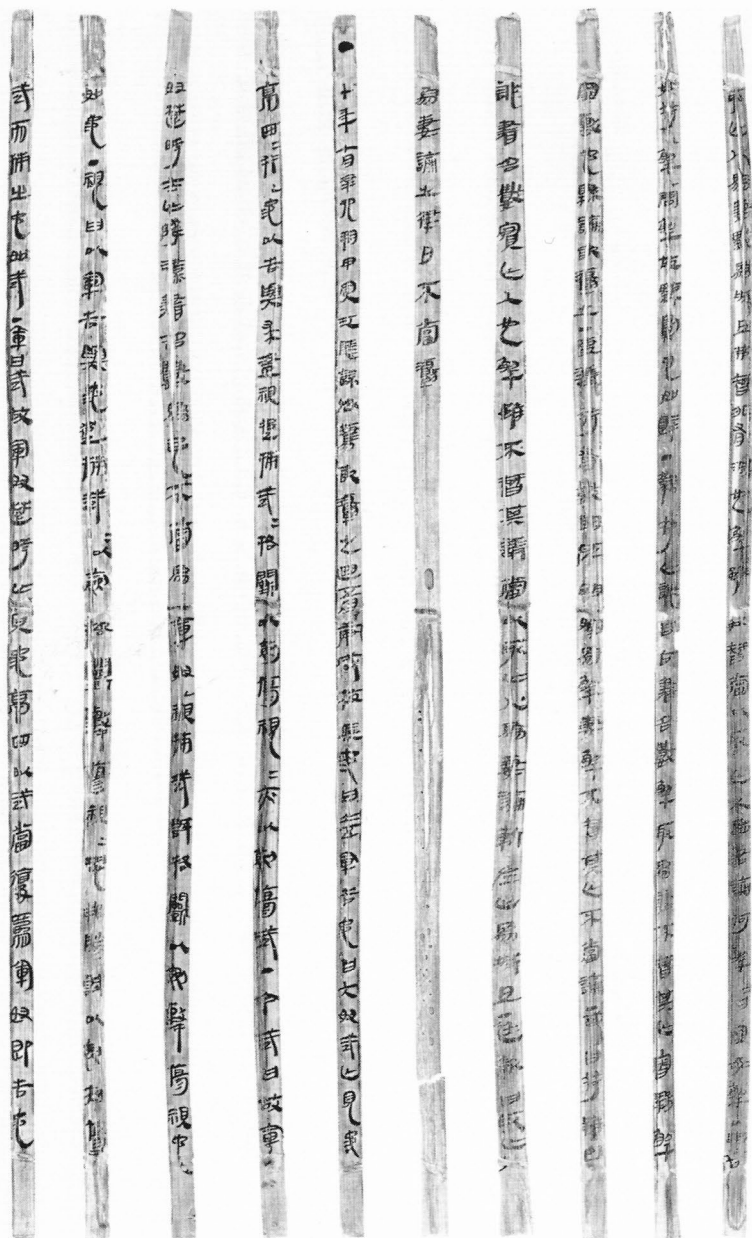 取亡人為妻黥以為城旦弗智非有減也解雖弗智當以取亡人為妻論何解解曰罪毋解明言
如符解問解故黥劓它如辤・鞫符亡詐自占書名數解取為妻不智其亡審疑解
罪𣪠它縣論敢𤅊之・吏議符有數明所明嫁為解妻解不智其亡不當論・或曰符雖已
詐書名數實亡人也解雖不智其請當以取亡人為妻論斬左止為城旦廷報曰取亡人
為妻論之律白不當𤅊
・十年七月辛卯朔甲寅江陵餘丞驁敢𤅊之廼五月庚戌校長池曰士五軍告池曰大奴武亡見池
亭西西行池以告與求盜視追捕武武格鬭以劍傷視視亦以劍傷武・今武曰故軍
奴楚時去亡降漢書名數為民不當為軍奴視捕武誠格鬭以劍擊傷視它
如池・視曰以軍告與池追捕武武以劍格鬭擊傷視視恐弗勝誠以劍刺傷
武而捕之它如武・軍曰武故軍奴楚時亡見池亭西以武當復為軍奴即告池